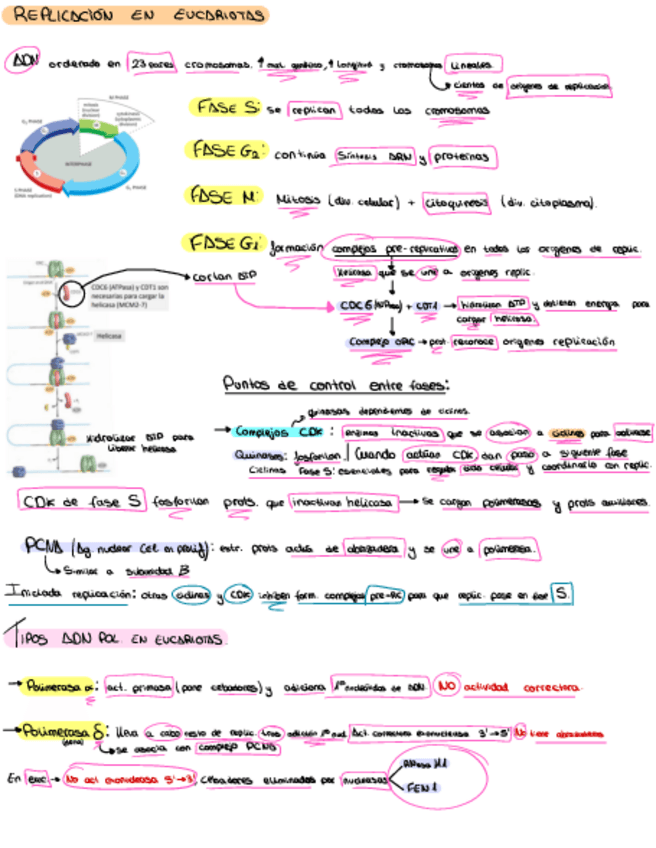 REPLICACIÓN EN EUCARIOTAS
ADN ordenado en 23 pares cromosomas. ↑ mat. genético, ↑ longitud y cromosomas lineales
cientos de orígenes de replicación
FASE S: se replican todos los cromosomas
FASE G2: continúa síntesis ARN y proteínas
FASE M: Mitosis (div. celular) + citoquinesis (div. citoplasma).
FASE G1: formación complejos pre-replicativos en todos los orígenes de replic.
M PHASE
mitosis (nuclear division)
cytokinesis (cytoplasmic division)
G2 PHASE
INTERPHASE
S PHASE (DNA replication)
G1 PHASE
cortan ATP
helicasa que se une a orígenes replic.
CDC6 (ATPasa) + CDT1 → hidrolizan ATP y obtienen energía para
cargar helicasa.
Complejo ORC → prot. reconoce orígenes replicación
CDC6 (ATPasa) y CDT1 son
necesarias para cargar la
helicasa (MCM2-7)
Helicasa
Hidrolizar ATP para
liberar helicasa
Puntos de control entre fases:
quinasas dependientes de ciclinas.
→ Complejos CDK: enzimas inactivas que se asocian a ciclinas para activarse
Quinasas: fosforilan / Cuando actúas CDK dan paso a siguiente fase
Ciclinas Fase S: esenciales para regular ciclo celular y coordinarlo con replic.
CDK de fase S fosforilan prots. que inactivas helicasa → Se cargan polimerasas y prots auxiliares.
PCNA (Ag. nuclear cel en prolif): estr. prots actús de abrazadera y se une a polimerasa.
↳ Similar a subunidad B
Iniciada replicación: otras ciclinas y CDK inhiben form. complejos pre-RC para que replic. pase en fase S.
TIPOS ADN POL. EN EUCARIOTAS.
→ Polimerasa α: act. primasa (pone cebadores) y adiciona 1os nucleótidos de ADN. NO actividad correctora.
→ Polimerasa δ: lleva a cabo resto de replic. tras adición 1os nucl. Act. correctora exonucleasa 3'→5' No tiene abrazadera
↳ se asocia con complejo PCNA
En euc. → No act exonucleasa 5'→3'. Cebadores eliminados por nucleasas
RNasa H1
FEN1